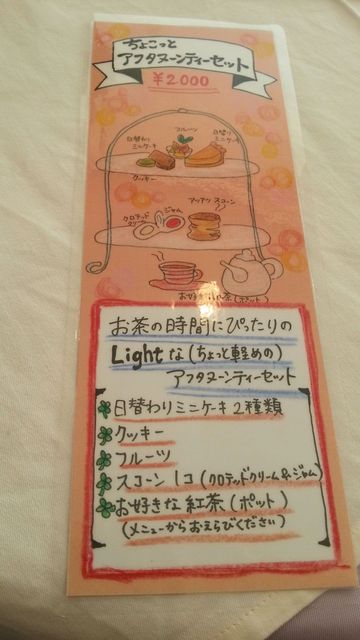 ちょこっと
アフタヌーンティーセット
¥2.000
フルーツ
日替わり
ミニケーキ
日替り
ミニケーキ
クッキー
アツアツ スコーン
クロテッド
クリーム
ジャム
お好きな紅茶(ポット)
お茶の時間にぴったりの
Lightな(ちょっと軽めの)
アフタヌーンティーセット
日替わりミニケーキ2種類
クッキー
フルーツ
スコーン1コ(クロテッドクリーム&ジャム)
お好きな紅茶(ポット)
(メニューからおえらびください)